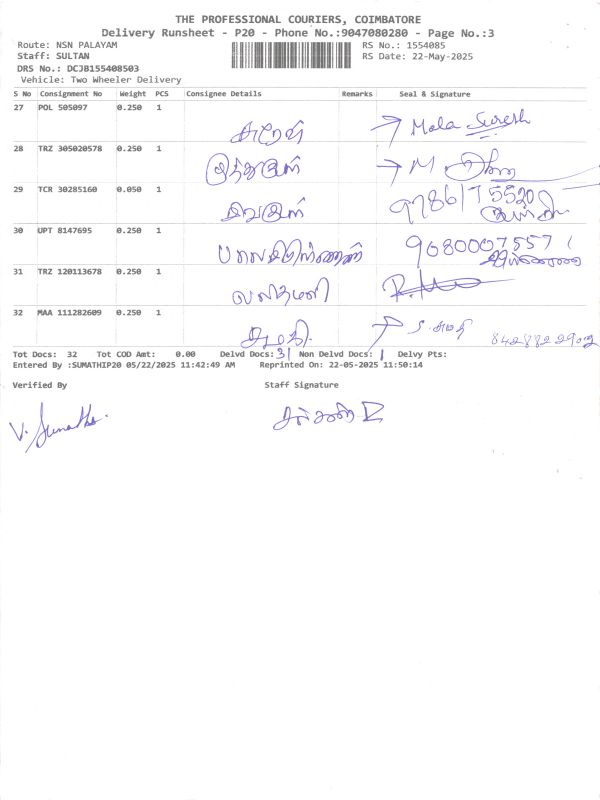 THE PROFESSIONAL COURIERS, COIMBATORE
Delivery Runsheet - P20 - Phone No.:9047080280 - Page No.:3
Route: NSN PALAYAM RS No.: 1554085
Staff: SULTAN RS Date: 22-May-2025
DRS No.: DCJB155408503
Vehicle: Two Wheeler Delivery
S No Consignment No Weight PCS Consignee Details Remarks Seal & Signature
27 POL 505097 0.250 1
சுரேஷ் Mala Suresh
28 TRZ 305020578 0.250 1
M
29 TCR 30285160 0.050 1
9786175520
30 UPT 8147695 0.250 1
9080007557
31 TRZ 120113678 0.250 1
வஸந்தமணி
32 MAA 111282609 0.250 1
8428822902
Tot Docs: 32 Tot COD Amt: 0.00 Delvd Docs: 31 Non Delvd Docs: 1 Delvy Pts:
Entered By :SUMATHIP20 05/22/2025 11:42:49 AM Reprinted On: 22-05-2025 11:50:14
Verified By Staff Signature
V. Sumathi